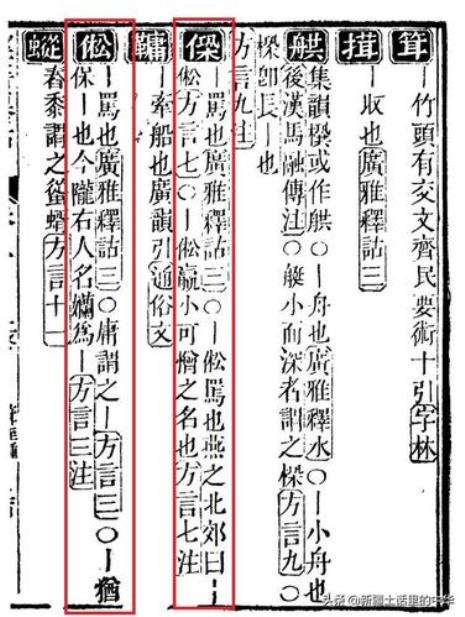 茸
—竹頭有交文齊民要術十引字林
—收也廣雅釋詁三
舼
集韻或作舼○—舟也廣雅釋水○—小舟也
後漢馬融傳注○艇小而深者謂之㮭方言九○
㮭卽長—也
方言九注
—罵也廣雅釋詁三○—倯罵也燕之北郊曰—
倯方言七○—倯羸小可憎之名也方言七注
—牽船也廣韻引通俗文
倯
—罵也廣雅釋詁三○庸謂之—方言三○—猶
保—也今隴右人名孏爲—方言三注
春黍謂之蝑方言十一
头条 @新疆土话里的中华